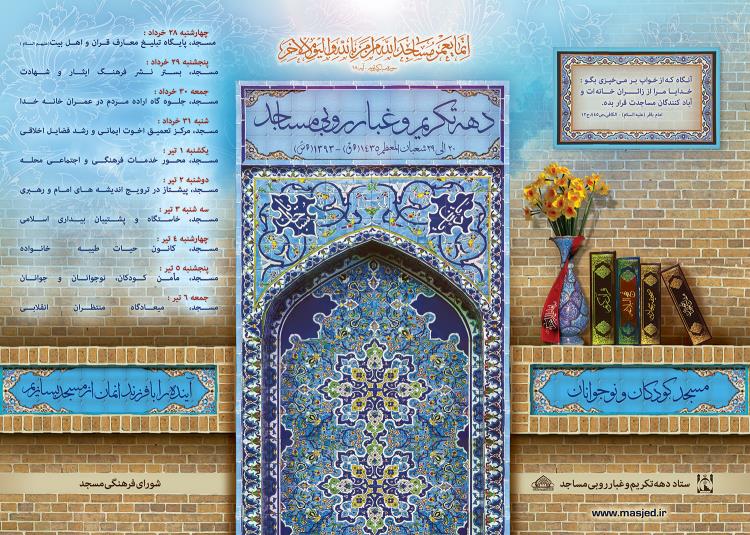 انما یعمر مساجد الله من آمن بالله و الیوم الآخر
دهه تکریم و غبارروبی مساجد
۲۰ الی ۲۹ شعبان المعظم ۱۴۳۵ (ه ق) - ۱۳۹۳ (ه ش)
آنگاه که از خواب بر می‌خیزی بگو :
خدایا مرا از زائران خانه‌ات و
آباد کنندگان مساجدت قرار بده.
امام باقر (علیه السلام) - الکافی،
چهارشنبه ۲۸ خرداد :
مسجد، پایگاه تبلیغ معارف قرآن و اهل بیت(علیهم السلام)
پنجشنبه ۲۹ خرداد :
مسجد، بستر نشر فرهنگ ایثار و شهادت
جمعه ۳۰ خرداد :
مسجد، جلوه گاه اراده مردم در عمران خانه خدا
شنبه ۳۱ خرداد :
مسجد، مرکز تعمیق اخوت ایمانی و رشد فضایل اخلاقی
یکشنبه ۱ تیر :
مسجد، محور خدمات فرهنگی و اجتماعی محله
دوشنبه ۲ تیر :
مسجد، پیشتاز در ترویج اندیشه های امام و رهبری
سه شنبه ۳ تیر :
مسجد، خاستگاه و پشتیبان بیداری اسلامی
چهارشنبه ۴ تیر :
مسجد، کانون حیات طیبه خانواده
پنجشنبه ۵ تیر :
مسجد، مأمن کودکان، نوجوانان و جوانان
جمعه ۶ تیر :
مسجد، میعادگاه منتظران انقلابی
مسجد کودکان و نوجوانان
آینده را با فرزندانمان از مسجد بسازیم
ستاد دهه تکریم و غبارروبی مساجد
شورای فرهنگی مسجد
www.masjed.ir